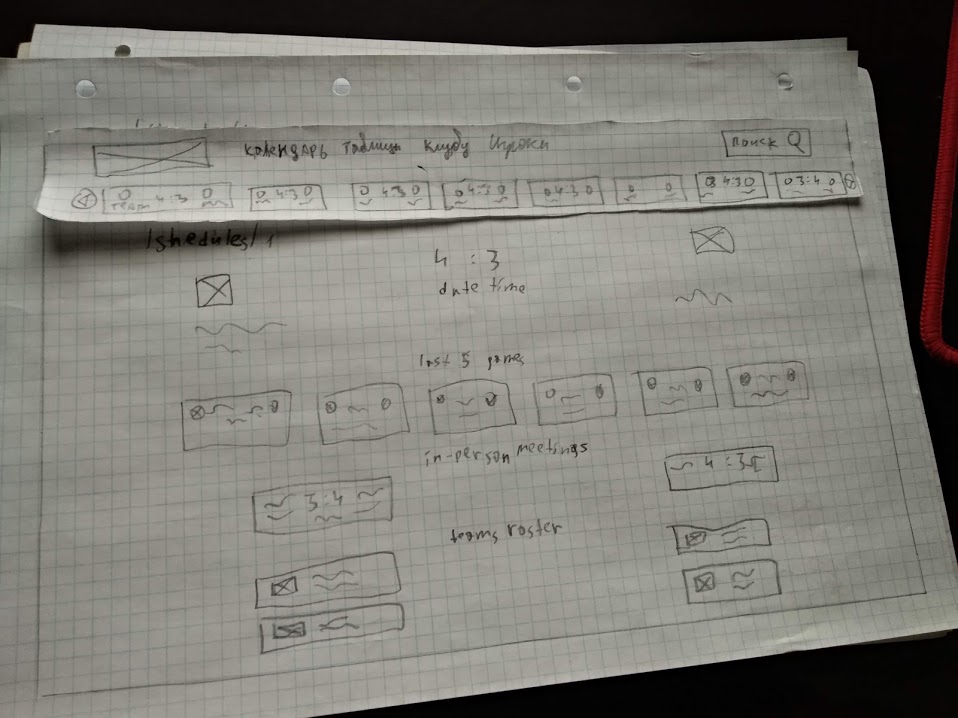 календарь таблицы клубу игроки
поиск
team 4:3 4:3 4:3 4:3 4:3 4:3 3:4
/shedules/1
4 : 3
date time
last 5 games
in-person meetings
3:4
teams roster